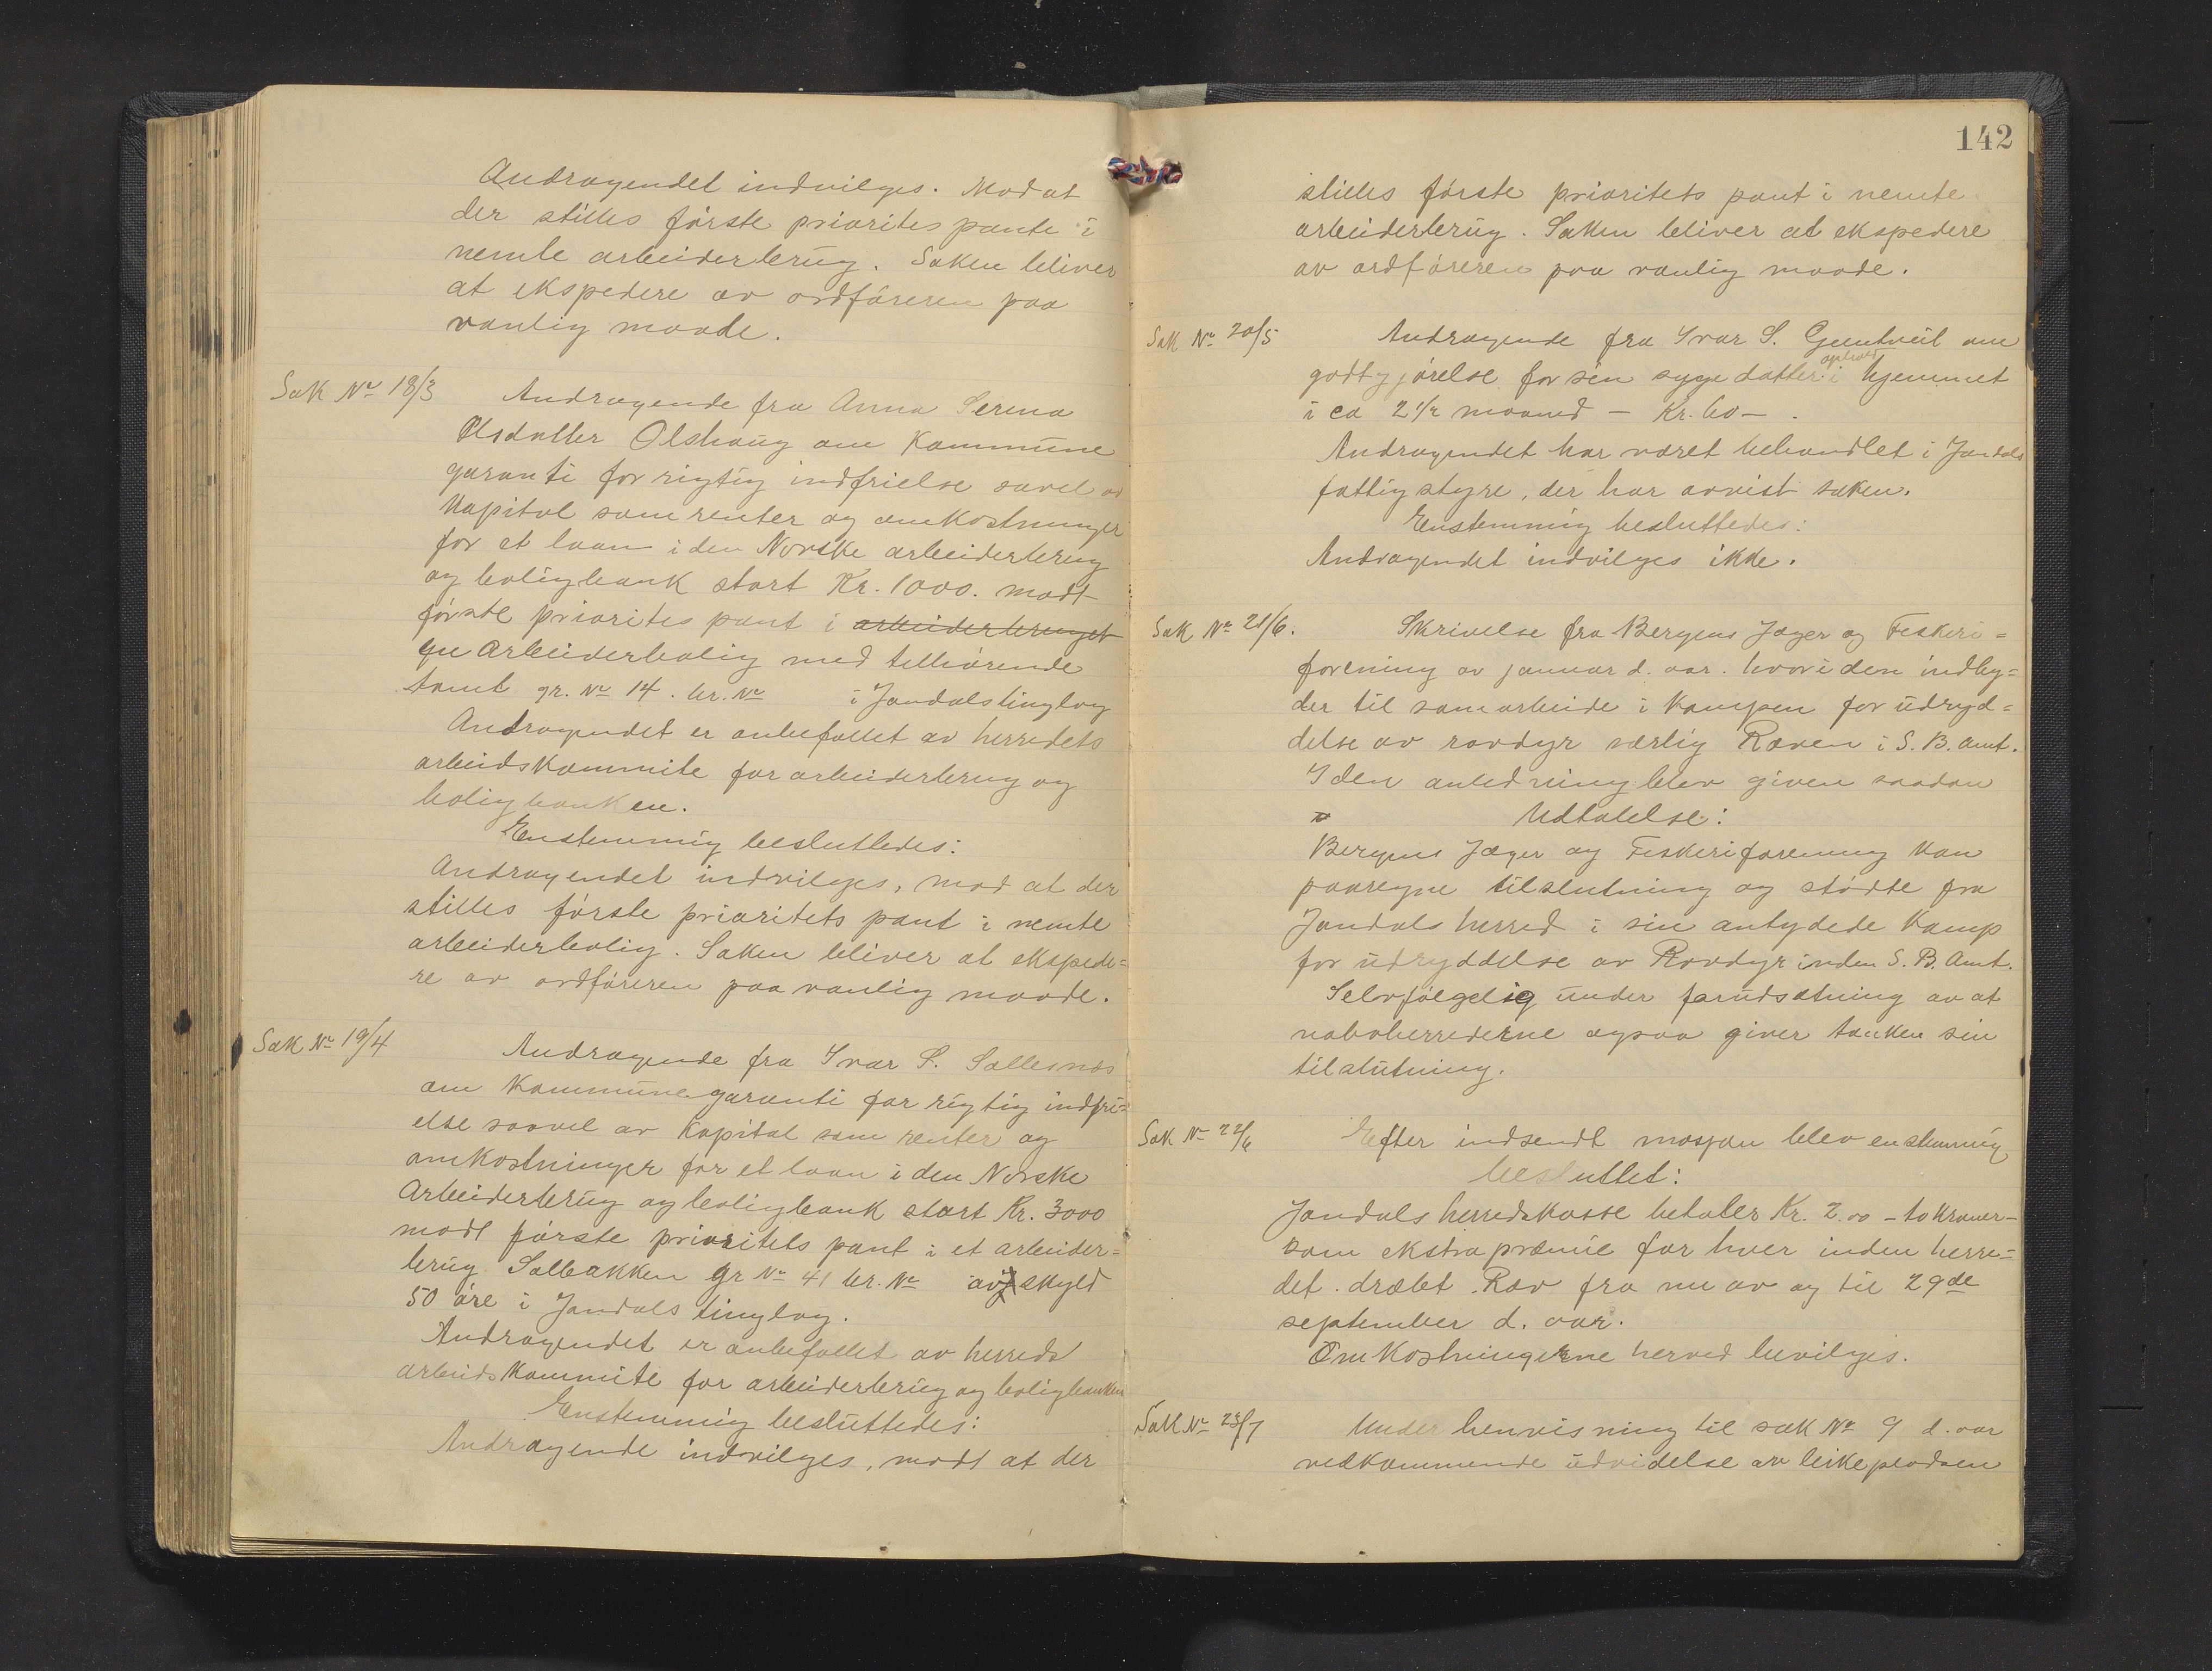 Andragendet indvilges. Mod at
der stilles förste priorites pante i
nemte arbeiderbrug. Saken bliver
at ekspedere av ordföreren paa
vanlig maade.
Sak No 18/3
Andragende fra Anna Serina
Olsdatter Olshaug om Kommune
garanti for rigtig indfrielse savel av
Kapital som renter og omkostninger
for et laan i den Norske arbeiderbrug
og boligbank stort Kr. 1000. modt
förste priorites pant i arbeiderbruget
en Arbeiderbolig med tilhörende
tomt gr. No 14. br. No i Jondals tinglag
Andragendet er anbefallet av herredets
arbeidskommite for arbeiderbrug og
boligbanken.
Enstemmig besluttedes:
Andragendet indvilges, mod at der
stilles förste prioritets pant i nemte
arbeiderbolig. Saken bliver at ekspede=
re av ordföreren paa vanlig maade.
Sak No 19/4
Andragende fra Ivar S. Sallesnes
om Kommunegaranti for rigtig indfri=
else saavel av Kapital som renter og
omkostninger for et laan i den Norske
Arbeiderbrug og boligbank stort Kr. 3000
modt förste prioritets pant i et arbeider=
brug Solbakken gr No 41 br. No av skyld
50 öre i Jondals tinglag.
Andragendet er anbefallet av herreds
arbeidskommite for arbeiderbrug og boligbanken
Enstemmig besluttedes:
Andragende indvilges, modt at der
142
stilles förste prioritets pant i nemte
arbeiderbrug. Saken bliver at ekspedere
av ordföreren paa vanlig maade.
Sak No 20/5
Andragende fra Ivar S. om
ophold
godtgjörelse for sin syge datter i hjemmet
i ca 2 1/2 maaned – Kr. 60 – .
Andragendet har været behandlet i Jondals
fattigstyre, der har avvist saken.
Enstemmig besluttedes:
Andragendet indvilges ikke.
Sak No 21/6.
Skrivelse fra Bergens Jæger og Fiskeri=
forening av januar d. aar. hvori den indby=
der til samarbeide i Kampen for udryd=
delse av rovdyr særlig Ræven i S. B. amt.
I den anledning blev given saadan
Udtalelse:
Bergens Jæger og Fiskeriforening kan
paaregne tilslutning og stödte fra
Jondals herred i sin antydede Kamp
for udryddelse av Rovdyr inden S. B. Amt.
Selvfölgelig under forudsætning av at
naboherrederne ogsaa giver tanken sin
tilslutning.
Sak No 22/6
Efter indsendt mosjon blev enstemmig
besluttet:
Jondals herredskasse betaler Kr. 2.00 – to kroner –
som ekstra præmie for hver inden herre=
det dræbt Ræv fra nu av og til 29de
september d. aar.
Omkostningerne herved bevilges.
Sak No 23/7
Under henvisning til sak No 9 d. aar
vedkommende udvidelse av leikepladsen